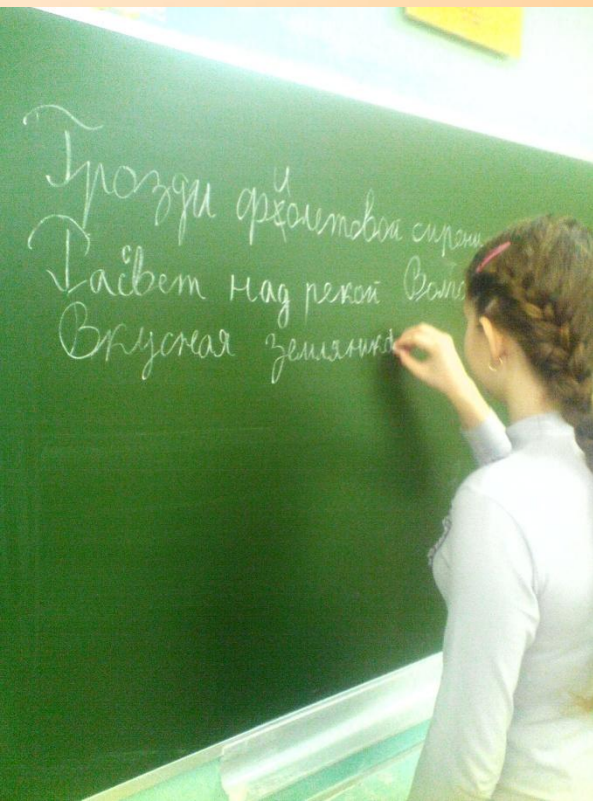 Грозди фиолетовой сирени
Рассвет над рекой Волго
Вкусная земляника